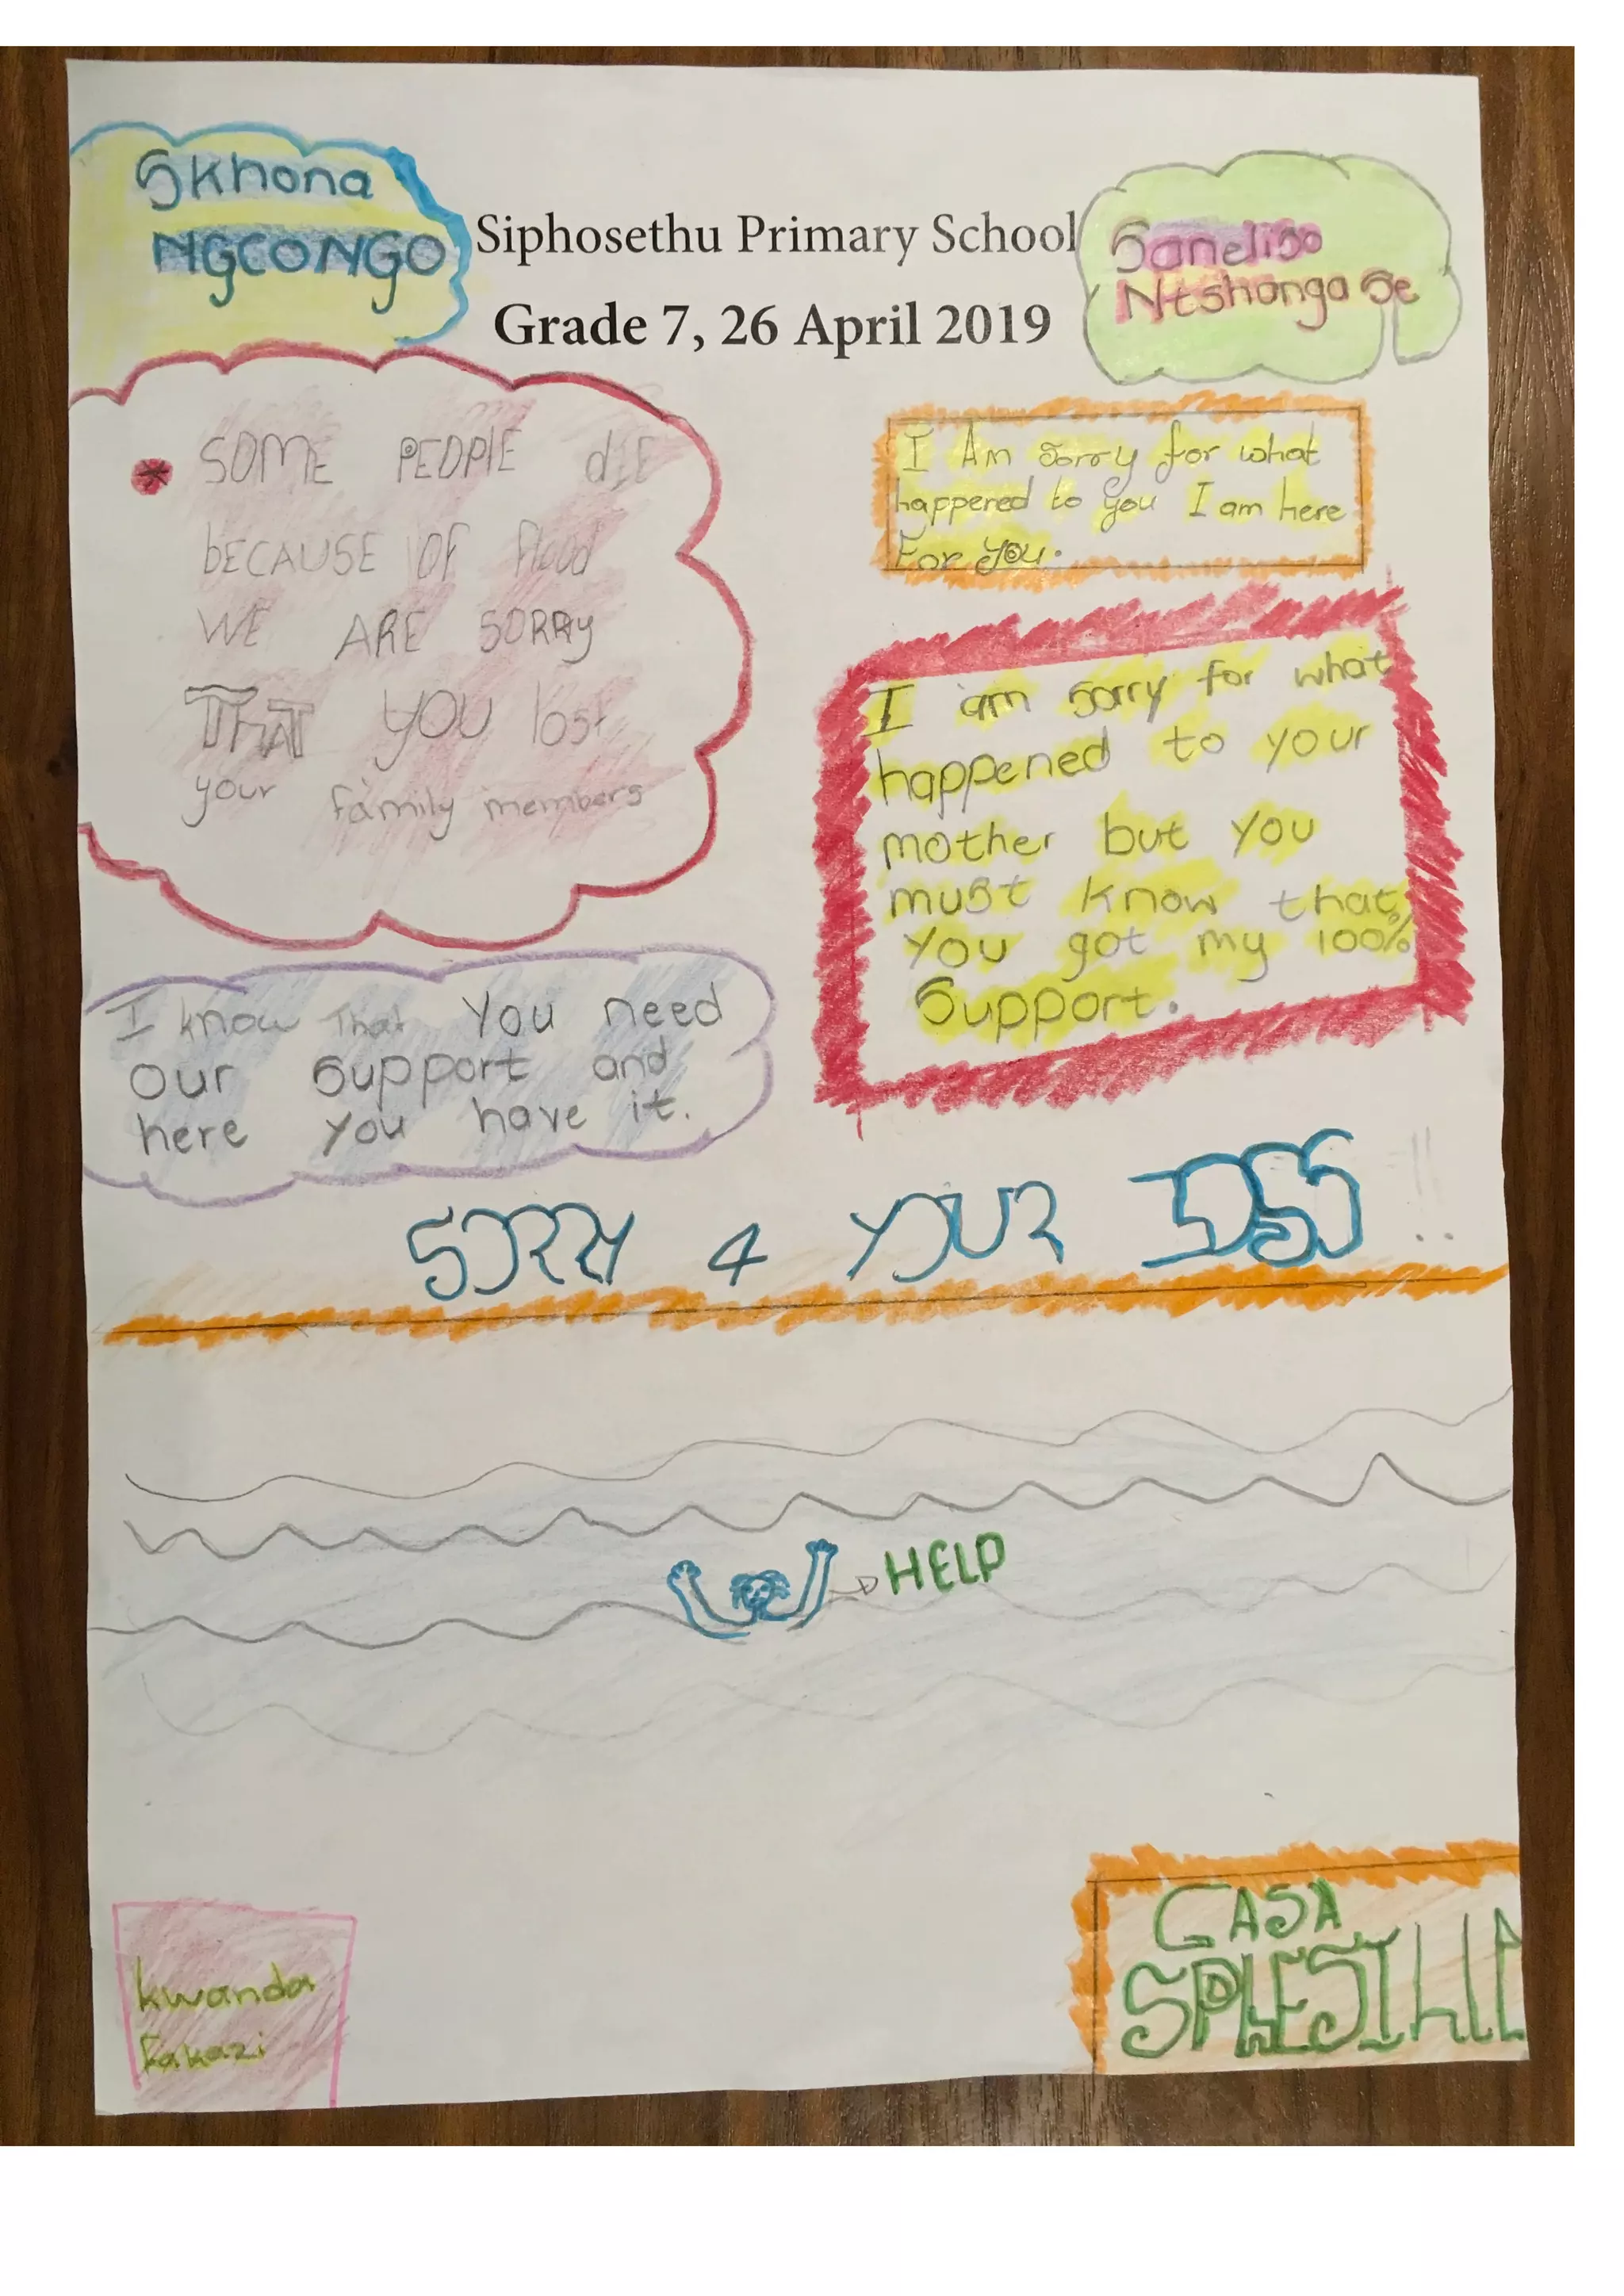 Skhona
NGCONGO
Siphosethu Primary School
Grade 7, 26 April 2019
Saneliso
Ntshangase
SOME PEOPlE dIE
bECAUSE OF flood
WE ARE SORRy
THAT YOU lost
your family members
I Am sorry for what
happened to you I am here
For you.
I am sorry for what
happened to your
mother but you
must know that
you got my 100%
Support.
I know That You need
our support and
here you have it.
SORRY 4 YOUR LOSS !!
HELP
kwanda
fakazi
CASA